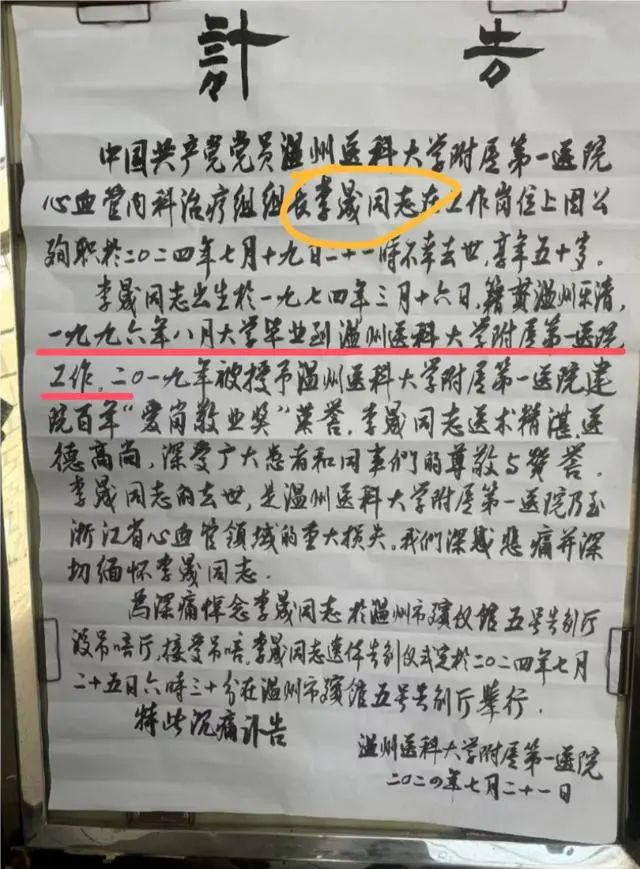 訃告
中国共产党党员温州医科大学附属第一医院
心血管内科治疗组组长李晟同志在工作岗位上因公
殉职於二〇二四年七月十九日二十一时不幸去世,享年五十岁。
李晟同志出生於一九七四年三月十六日,籍贯温州乐清,
一九九六年八月大学毕业到温州医科大学附属第一医院
工作。二〇一九年被授予温州医科大学附属第一医院建
院百年“爱岗敬业奖”荣誉。李晟同志医术精湛,医
德高尚,深受广大患者和同事们的尊敬与赞誉。
李晟同志的去世,是温州医科大学附属第一医院乃至
浙江省心血管领域的重大损失,我们深感悲痛并深
切缅怀李晟同志。
为深痛悼念李晟同志於温州市殡仪馆五号告别厅
设吊唁厅,接受吊唁,李晟同志遗体告别仪式定於二〇二四年七月
二十五日六時三十分在温州市殡馆五号告别厅举行。
特此沉痛讣告
温州医科大学附属第一医院
二〇二四年七月二十一日